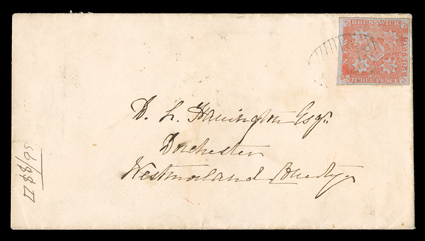 BRUNSWICK
THREE PENCE
D. L. Hanington Esqr.
Dorchester
Westmorland County